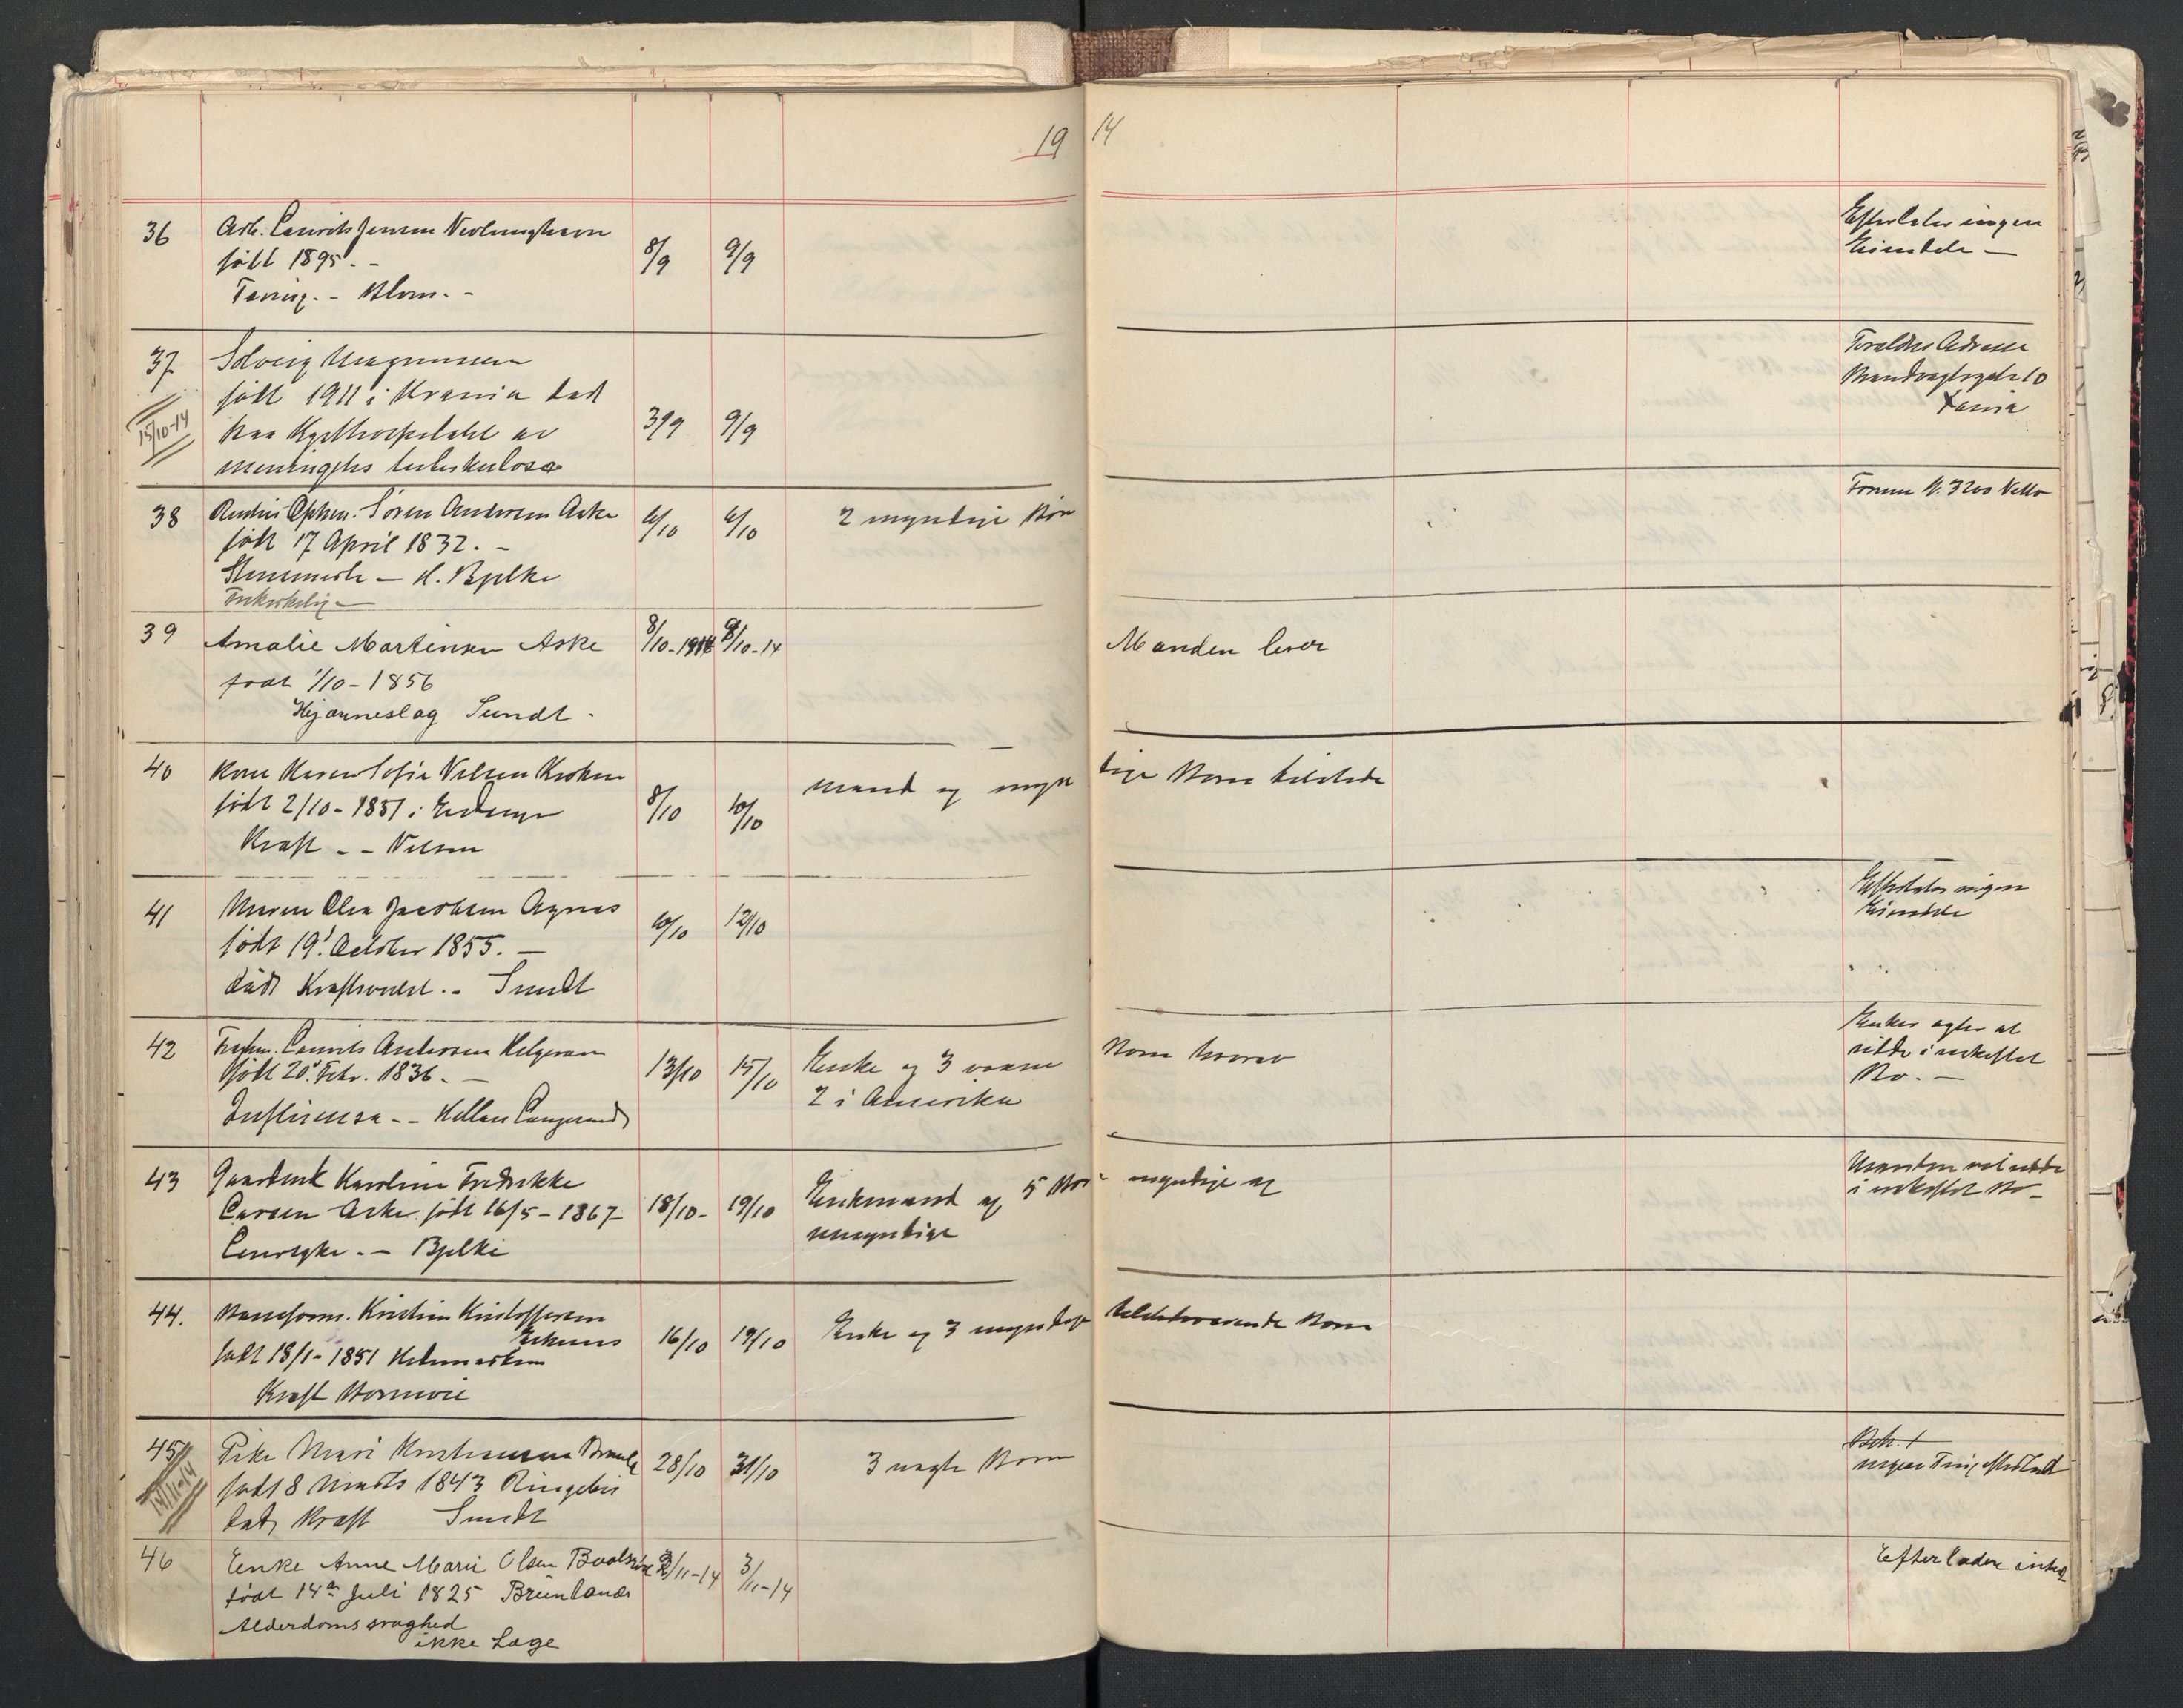 19 14
36 Arb. Laurits Jensen
født 1895. -
Tæring. - Blom. -
8/9 9/9
Efterlater ingen
Eiendele -
37 Solveig Magnussen
født 1911 i Krania død
paa Kysthospitalet av
meningitis tuberkulose
15/10-14
3/9 9/9
Forældres Adresse
10
Xania
38 Søren Andersen Aske
født 17 April 1832. -
- H. Bjelke
6/10 6/10
2 myndige Børn
Formue K. 3200 Netto
39 Amalie Martinsen Aske
født 1/10-1856
Hjærneslag Sundt -
8/10-1914 9/10-14
Manden lever
40 Kone Karen Sofie Nilsen Kroken
født 2/10-1851 i
Kræft - - Nilsen
8/10 10/10
Mand og myn dige Børn tilstede
41 Maren Olea Jacobsen Agnes
født 19' October 1855. -
død Kræftsvulst. - Sundt
10/10 12/10
Efterlater ingen
Eiendele
42 Laurits Andersen Helgeroen
født 20' Febr. 1836. -
Influensa - - Langesund
13/10 15/10
Enke og 3 voxne Børn hvorav
2 i Amerika
Enken agter at
sidde i uskiftet
Bo. -
43 Karoline Fredrikke
Larsen Aske. født 16/5-1867
- - Bjelke
18/10- 19/10
Enkemand og 5 Børn myndige og
umyndige
Manden vil sidde
i uskiftet Bo -
44. Kristian Kristoffersen
født 18/1-1851 Hedemarken
Kræft
16/10 19/10
Enke og 3 myndige tilstedeværende Børn
45 Pike Mari Kristiansen
født 8 Marts 1843 Ringebu
død, Kræft Sundt
14/11-14
28/10 31/10
3 uægte Børn
ingen Ting efterladt
46 Enke Anne Marie Olsen
født 14de Juli 1825 Brunlanæs
Alderdomssvaghed
ikke Læge
2/11-14 3/11-14
Efterlader intet